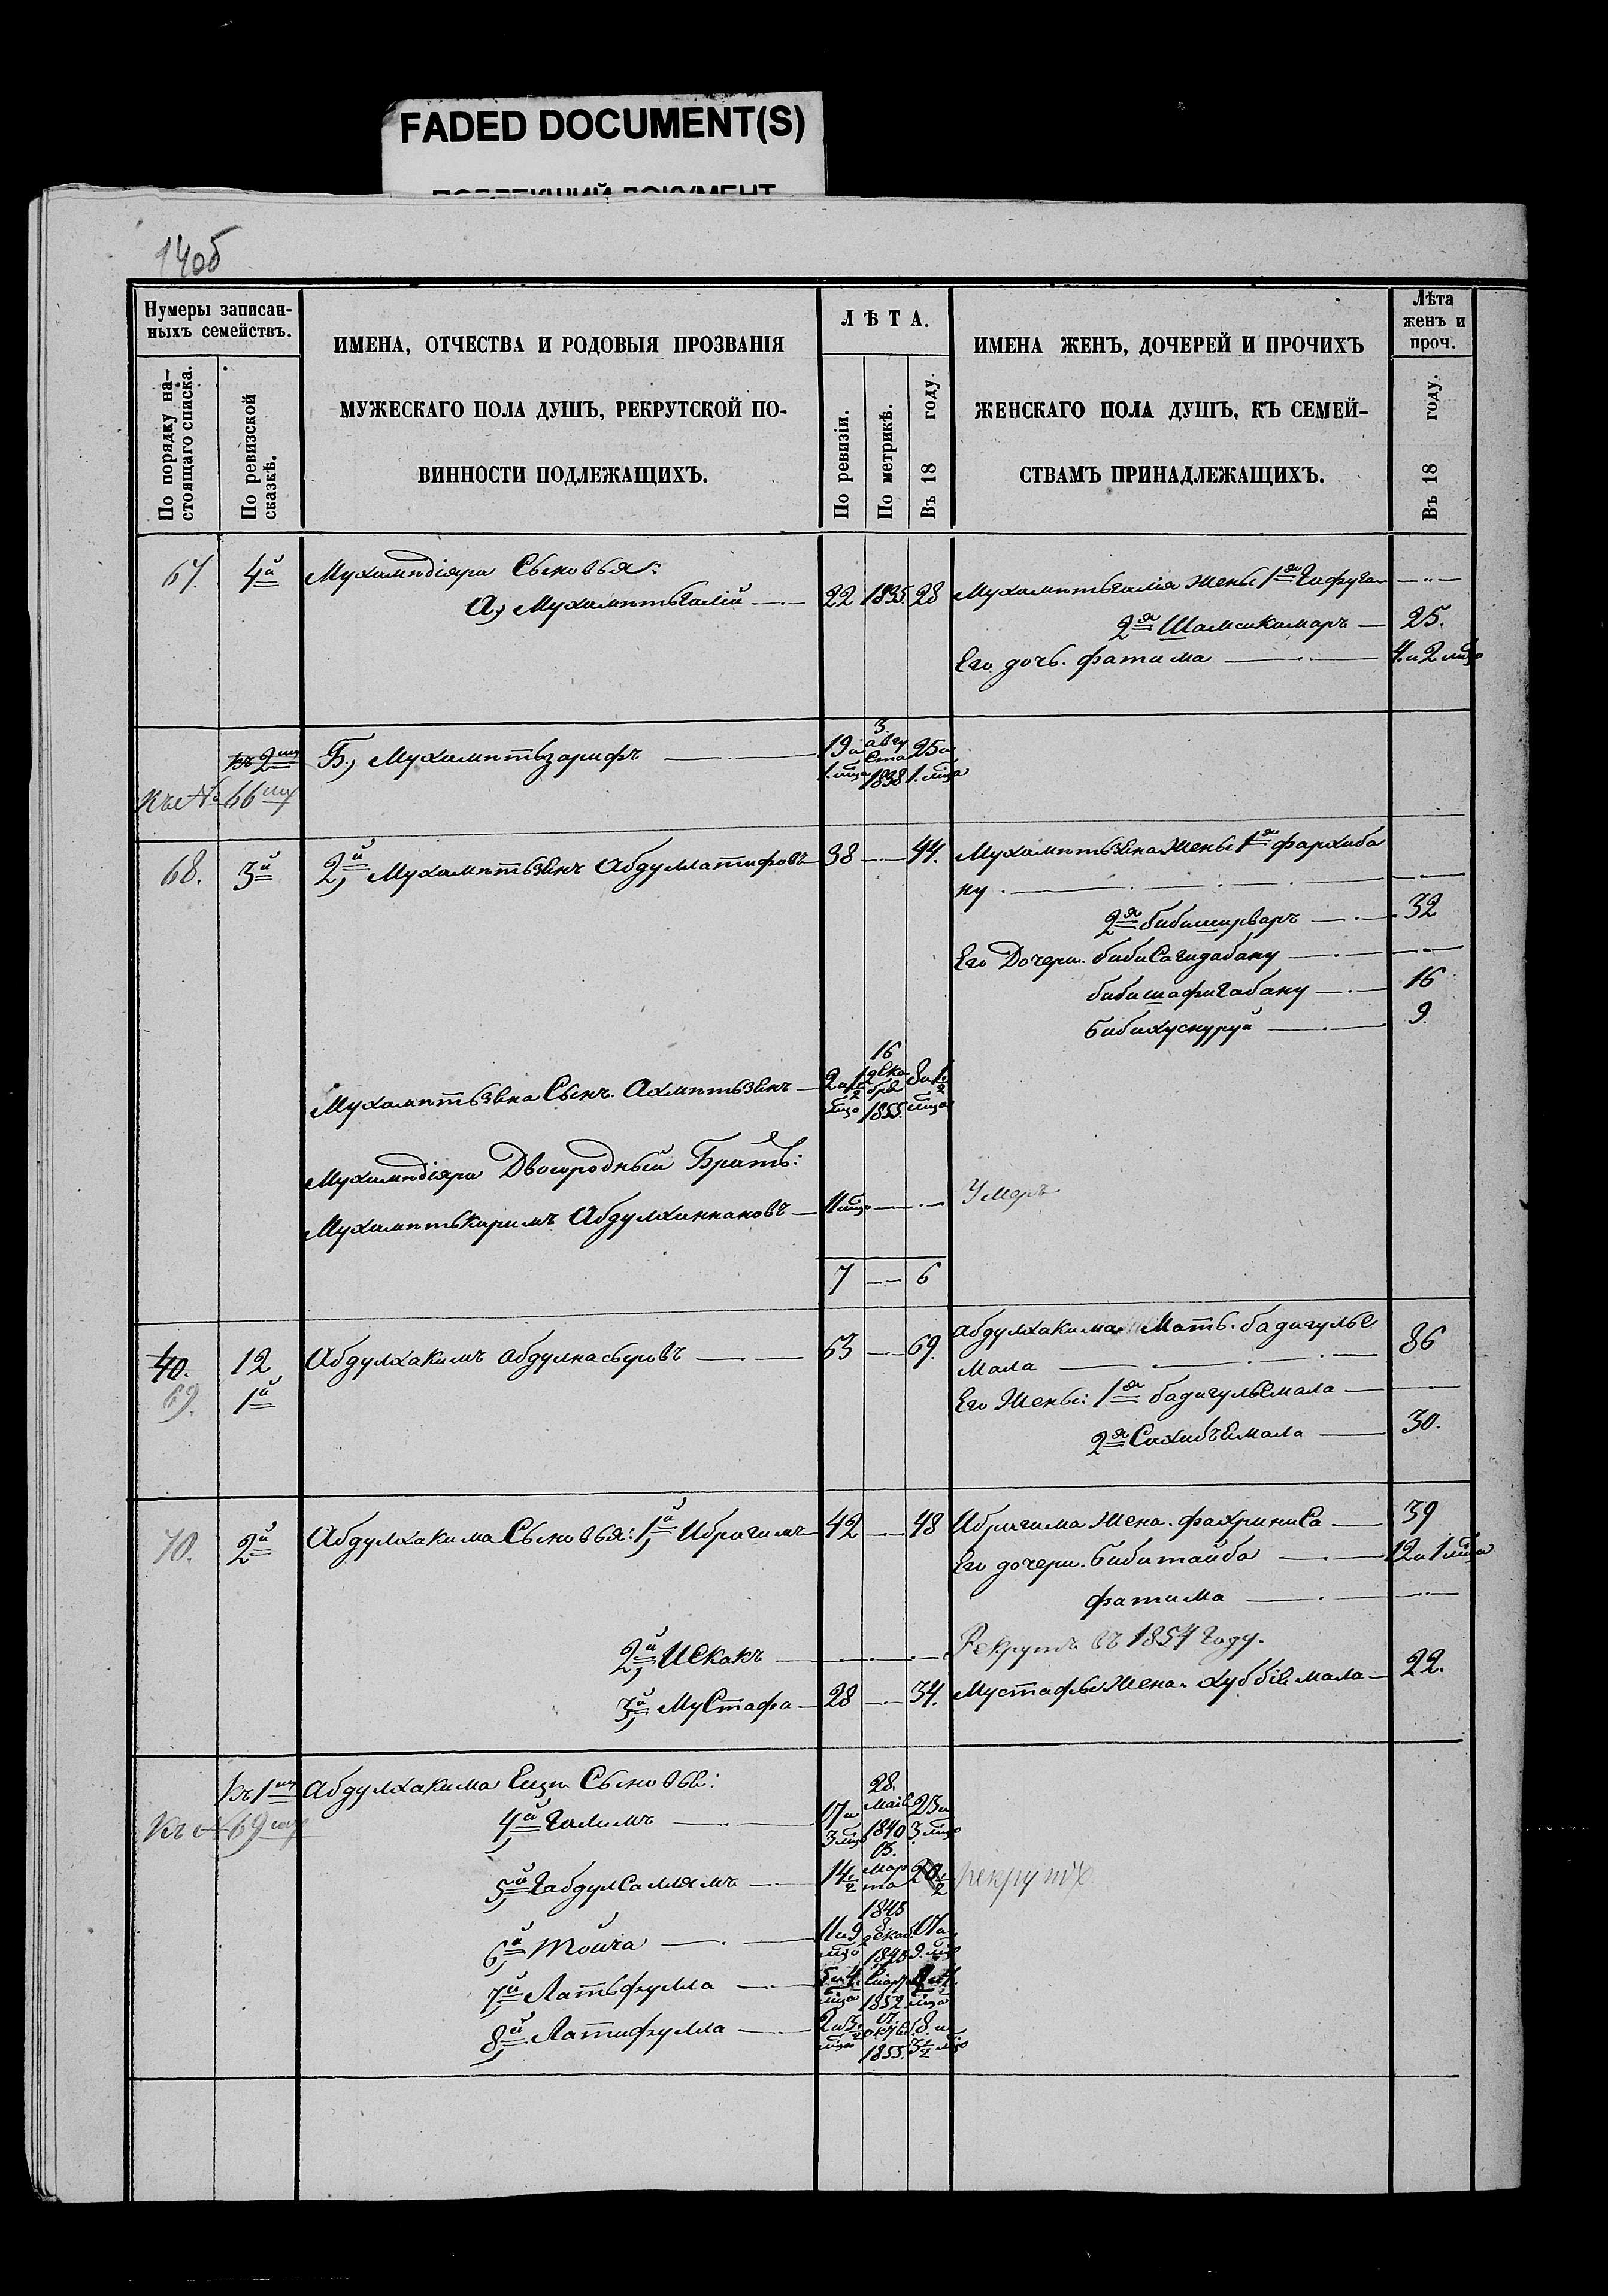 FADED DOCUMENT(S)
14об
Нумеры записан-
ныхъ семействъ.
По порядку на-
стоящаго списка.
По ревизской
сказкѣ.
ИМЕНА, ОТЧЕСТВА И РОДОВЫЯ ПРОЗВАНІЯ
МУЖЕСКАГО ПОЛА ДУШЪ, РЕКРУТСКОЙ ПО-
ВИННОСТИ ПОДЛЕЖАЩИХЪ.
ЛѢТА.
По ревизіи.
По метрикѣ.
Въ 18 году.
ИМЕНА ЖЕНЪ, ДОЧЕРЕЙ И ПРОЧИХЪ
ЖЕНСКАГО ПОЛА ДУШЪ, КЪ СЕМЕЙ-
СТВАМЪ ПРИНАДЛЕЖАЩИХЪ.
Лѣта
женъ и
проч.
Въ 18 году.
67. 4й Мухамидіяра Сыновья:
А, Мухамитьгалій 22 1835. 28 Мухамитьгалія жены 1я
2я Шамсикамаръ 25.
Его дочь. фатима 4. и 2 мѣц
Къ 2му Б, Мухамитьзарифъ 19 и 1. мѣца 3. августа 1838 25 и 1. мѣца
Къ № 66му
68. 3й 2й, Мухамитьзянъ Абдуллатифовъ 38 44. Мухамитьзяна Жены 1я фархиба
ну
2я бибишарваръ 32
Его Дочери. бибиСагидабану
бибишафигабану 16
бибихуснуруй 9.
Мухамитьзяна Сынъ. Ахмитьзянъ 2 и 1/2 мѣцо 16 декабря 1855. 8 и 1/2 мѣца
Мухамидіяра Двоюродный Братъ:
Мухамитькаримъ Абдулханнановъ 11 мѣцо Умеръ
7 6
40. 12 Абдулхакимъ Абдулнасыровъ 63 69. Абдулхакима Мать. бадигульЕ
мала 86
69. 1й Его Жены: 1я бадигульЕмала
2я СахибъЕмала 30.
70. 2й Абдулхакима Сыновья: 1й, Ибрагимъ 42 48 Ибрагима жена. фахриниСа 39
Его дочери. бибитайба 12 и 1 мѣца
фатима
2й, Исхакъ Рекрутъ въ 1854 году.
3й, МуСтафа 28 34. Мустафы жена. хуббіямала 22.
Къ 1му Абдулхакима Еще Сыновья:
Къ № 69му 4й, Галимъ 17 и 3 мѣца 28. Маія 1840 23 и 3 мѣца
5й, ГабдулСаллямъ 14 1/2 Марта 1843 20 1/2 рекрутъ
6й, Мойча 11 и 9 мѣцо 8 декаб. 17 и 9. мѣц
7й, Латьфулла 1852 мѣца
8й, Латифулла 1855. 8. и 3 1/2 мѣц